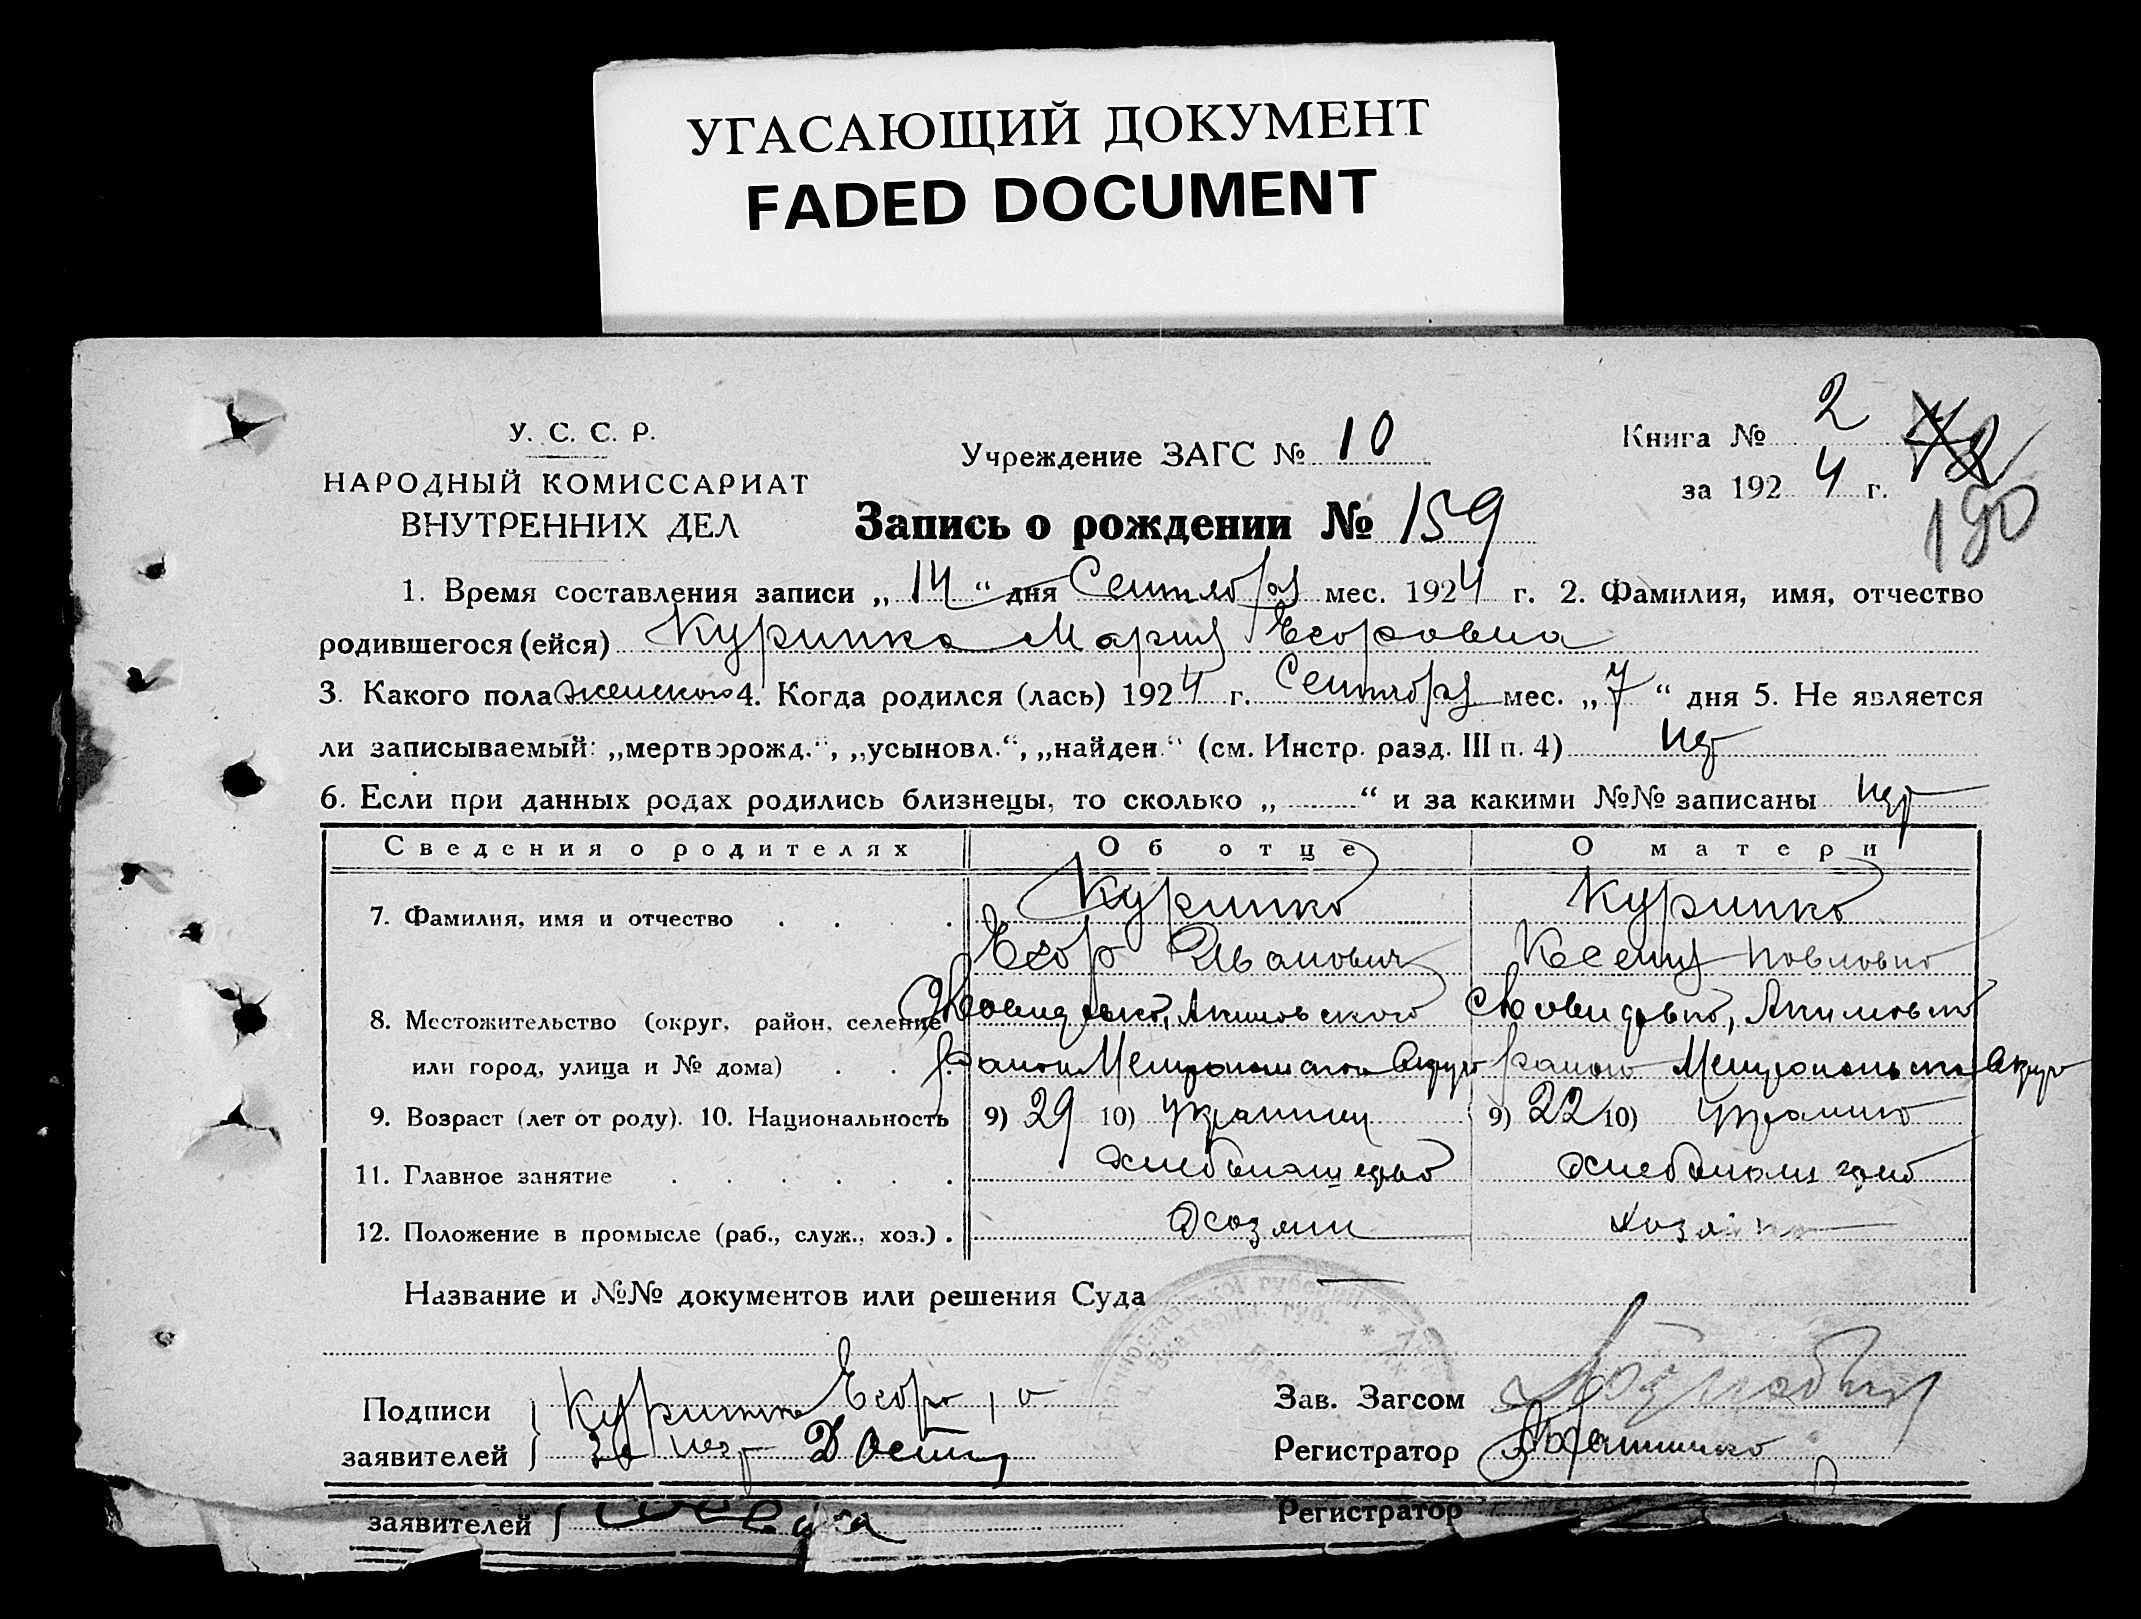 УГАСАЮЩИЙ ДОКУМЕНТ
FADED DOCUMENT
У. С. С. Р.
НАРОДНЫЙ КОМИССАРИАТ
ВНУТРЕННИХ ДЕЛ
Учреждение ЗАГС № 10
Книга № 2
за 1924 г.
190
Запись о рождении № 159
1. Время составления записи „14“ дня Сентября мес. 1924 г. 2. Фамилия, имя, отчество
родившегося (ейся) Курипко Мария Егоровна
3. Какого пола женского 4. Когда родился (лась) 1924 г. Сентября мес. „7“ дня 5. Не является
ли записываемый: „мертворожд.“, „усыновл.“, „найден.“ (см. Инстр. разд. III п. 4) нет
6. Если при данных родах родились близнецы, то сколько „ “ и за какими №№ записаны нет
Сведения о родителях Об отце О матери
7. Фамилия, имя и отчество Курипко Курипко
Егор Иванович Ксения Павловна
8. Местожительство (округ, район, селение Акимовского
или город, улица и № дома) района Мелитопольского Округа района Мелитопольского Округа
9. Возраст (лет от роду). 10. Национальность 9) 29 10) Украинец 9) 22 10) Украинка
11. Главное занятие хлебопашество
12. Положение в промысле (раб., служ., хоз.) хозяин хозяйка
Название и №№ документов или решения Суда —
Подписи Курипко Егор
Зав. Загсом
заявителей
Регистратор
заявителей
Регистратор